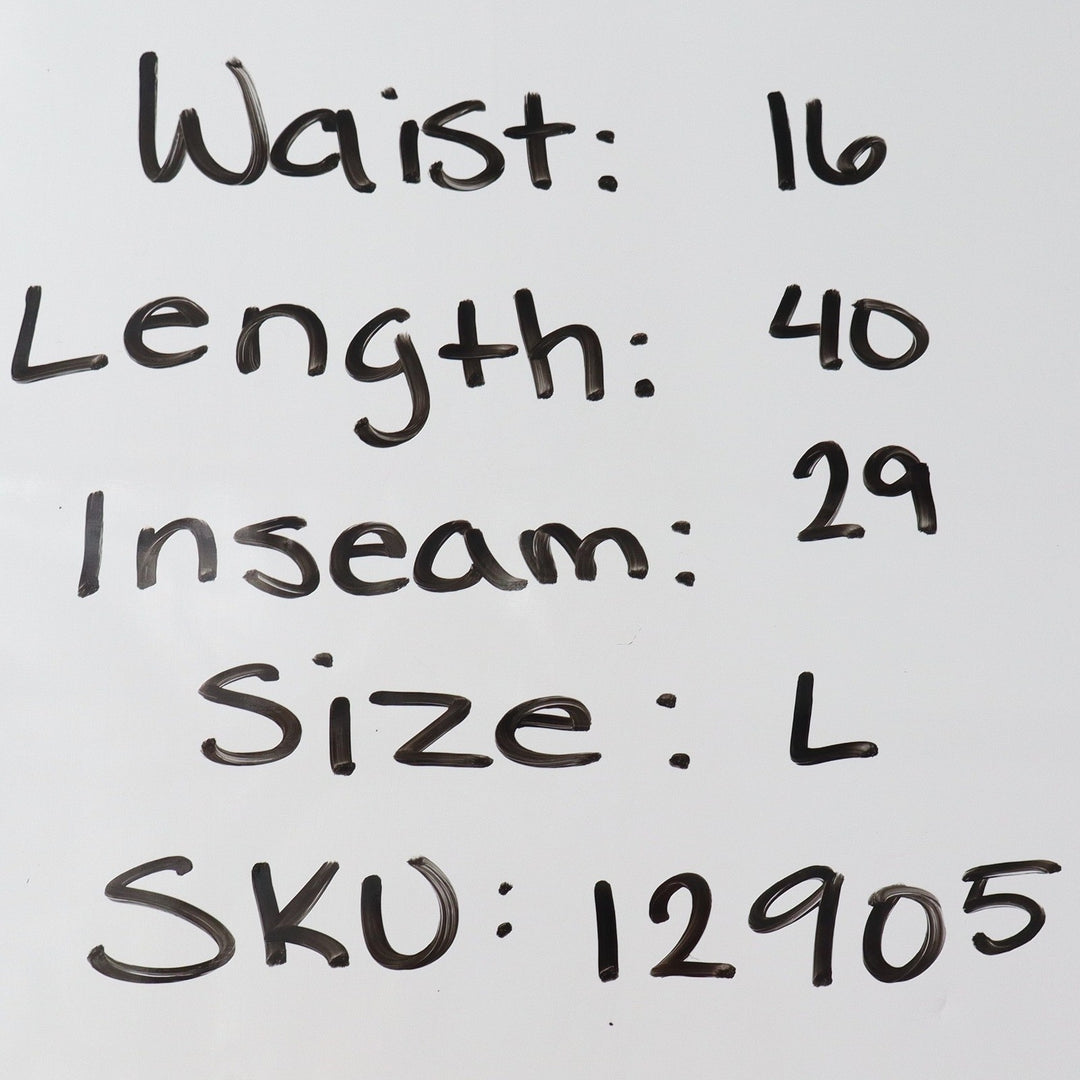 Waist: 16
Length: 40
Inseam: 29
Size: L
SKU: 12905